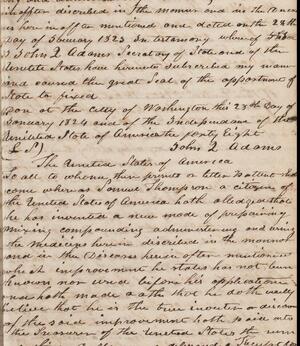 after discribed in the manner and in the
is herein after mentioned and dated on the 28th
Day of January 1823 In testimony where of
I John Q Adams Secretary of State and of the
United States have hereunto Subscribed my name
and caused the great Seal of the
to be fixed
Don at the City of Washington this 28th Day of
January 1824 and of the Independance of the
United State of America the forty Eight
L S) John Q Adams
The United States of America
To all to whome these prints or letter Patent shall
come where as Samuel Thompson a citizen of
the United State of America hath alledged that
he has invented a new mode of prepairing
mixing compounding administering and using
the Medicens herein discribed in the manner
and in the Diseases herein after mentioned
which improvement he states has not been
known nor used before his application
and hath made oath that he do th verily
believe that he is the true inventor or discov
of the said improvement hath paid into
the Treasurer of the United States the sum